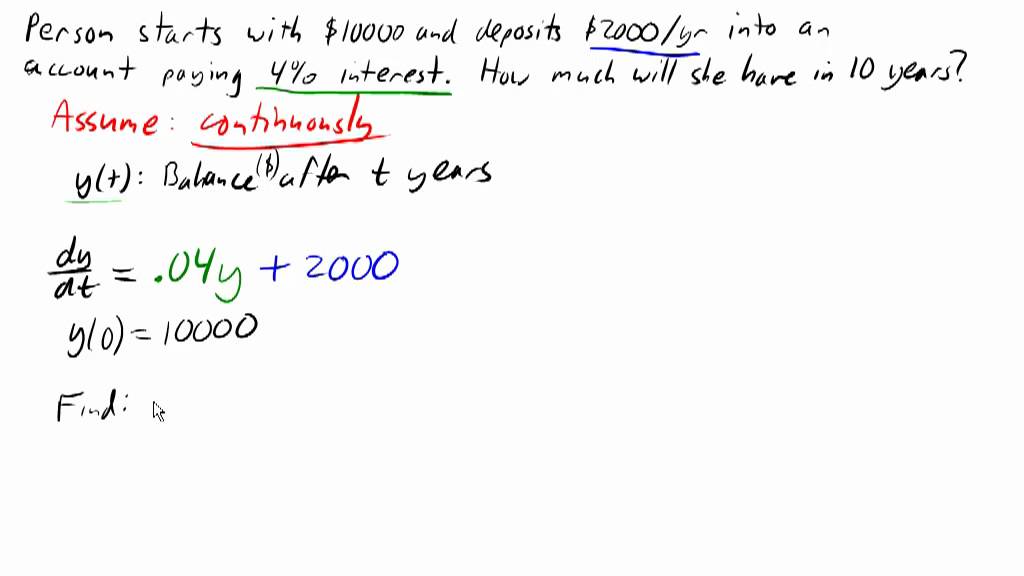 Person starts with $10000 and deposits $2000/yr into an
account paying 4% interest. How much will she have in 10 years?
Assume: continuously
y(t): Balance ($) after t years
dy/dt = .04y + 2000
y(0) = 10000
Find: